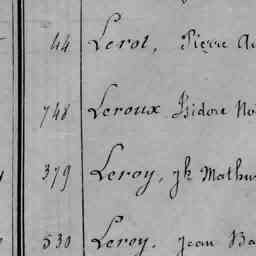 44 Lerot, Pierre
748 Leroux Isidore
379 Leroy, jh Mathur
530 Leroy, Jean Ba